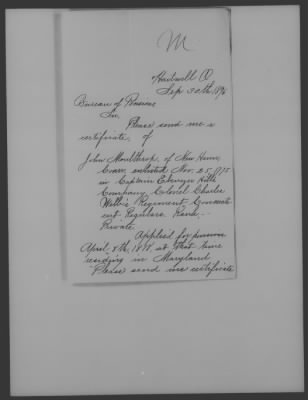 M
Hartwell O
Sep 30th 1896
Bureau of Pensions
Sir,
Please send me a
certificate, of
John Moulthrop, of New Haven,
Conn, enlisted Nov. 25, 1775
in Captain
Company, Colonel Charles
Webb's Regiment Connecticut
Regulars. Rank,—
Private
Applied for pension
April 8th, 1818, at that time
residing in Maryland
Please send me certificate